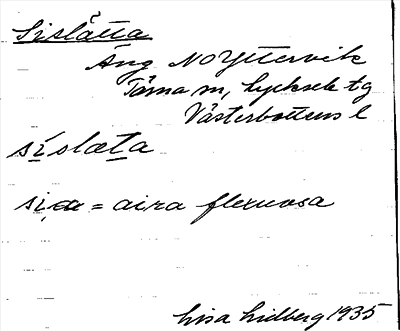 Sislåtta
Äng NO Yttervik
Tärna sn, Lycksele tg
Västerbottens l
síslæta
sia = aira flexuosa
Lisa Lidberg 1935